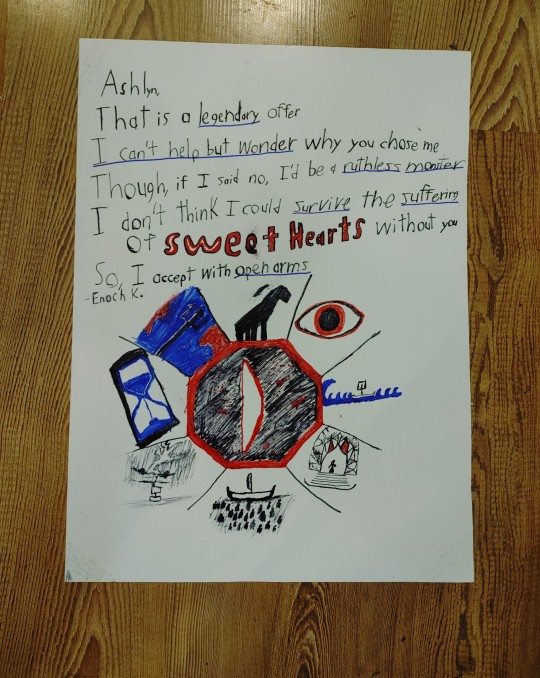 Ashlyn,
That is a legendary offer
I can't help but wonder why you chose me
Though, if I said no, I'd be a ruthless monster
I don't think I could survive the suffering
of sweet Hearts without you
So, I accept with open arms
-Enoch K.